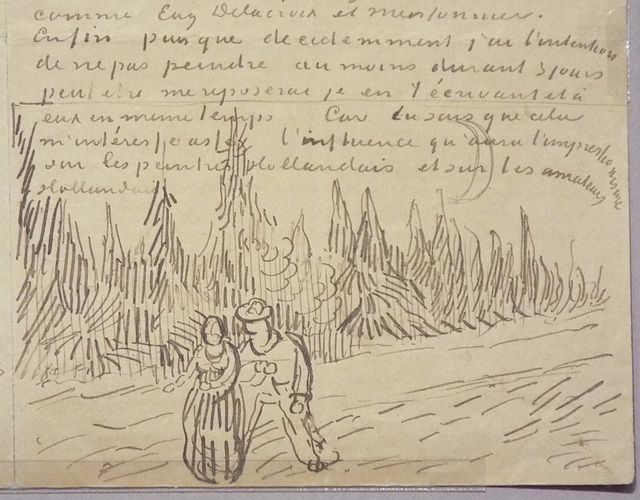 comme Eug Delacroix et Meissonnier.
Enfin puisque decidemment j'ai l'intention
de ne pas peindre au moins durant 3 jours
peut etre me reposerai je en t'écrivant et à
eux en meme temps Car tu sais que cela
m'intéresse assez l'influence qu'aura l'impressionnisme
sur les peintres Hollandais et sur les amateurs
Hollandais